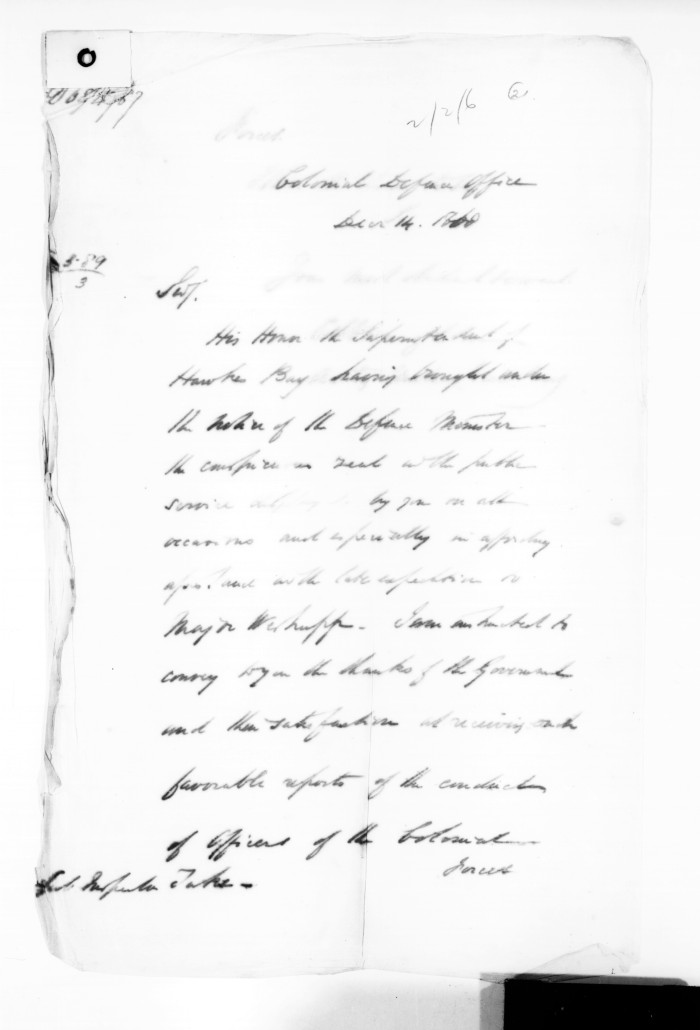 O
2/2/6
Colonial Defence Office
Decr 14. 1868
3.89
3
Sir,
His Honor the Superintendent of
Hawkes Bay having brought under
the notice of the Defence Minister
the conspicuous zeal in the public
service by you on all
occasions and especially in affording
in the late expedition
Major Westrupp. I am instructed to
convey to you the thanks of the Government
and their satisfaction at receiving such
favorable reports of the conduct
of Officers of the Colonial
Forces
Sub. Inspector Tuke